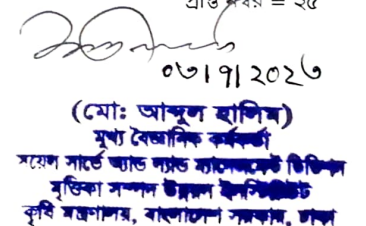 = ২৫
০৩।৭।2023
(মো: আব্দুল হালিম)
মূখ্য বৈজ্ঞানিক কর্মকর্তা
সয়েল সার্ভে অ্যান্ড ল্যান্ড ম্যানেজমেন্ট ডিভিশন
মৃত্তিকা সম্পদ উন্নয়ন ইনস্টিটিউট
কৃষি মন্ত্রণালয়, বাংলাদেশ সরকার, ঢাকা